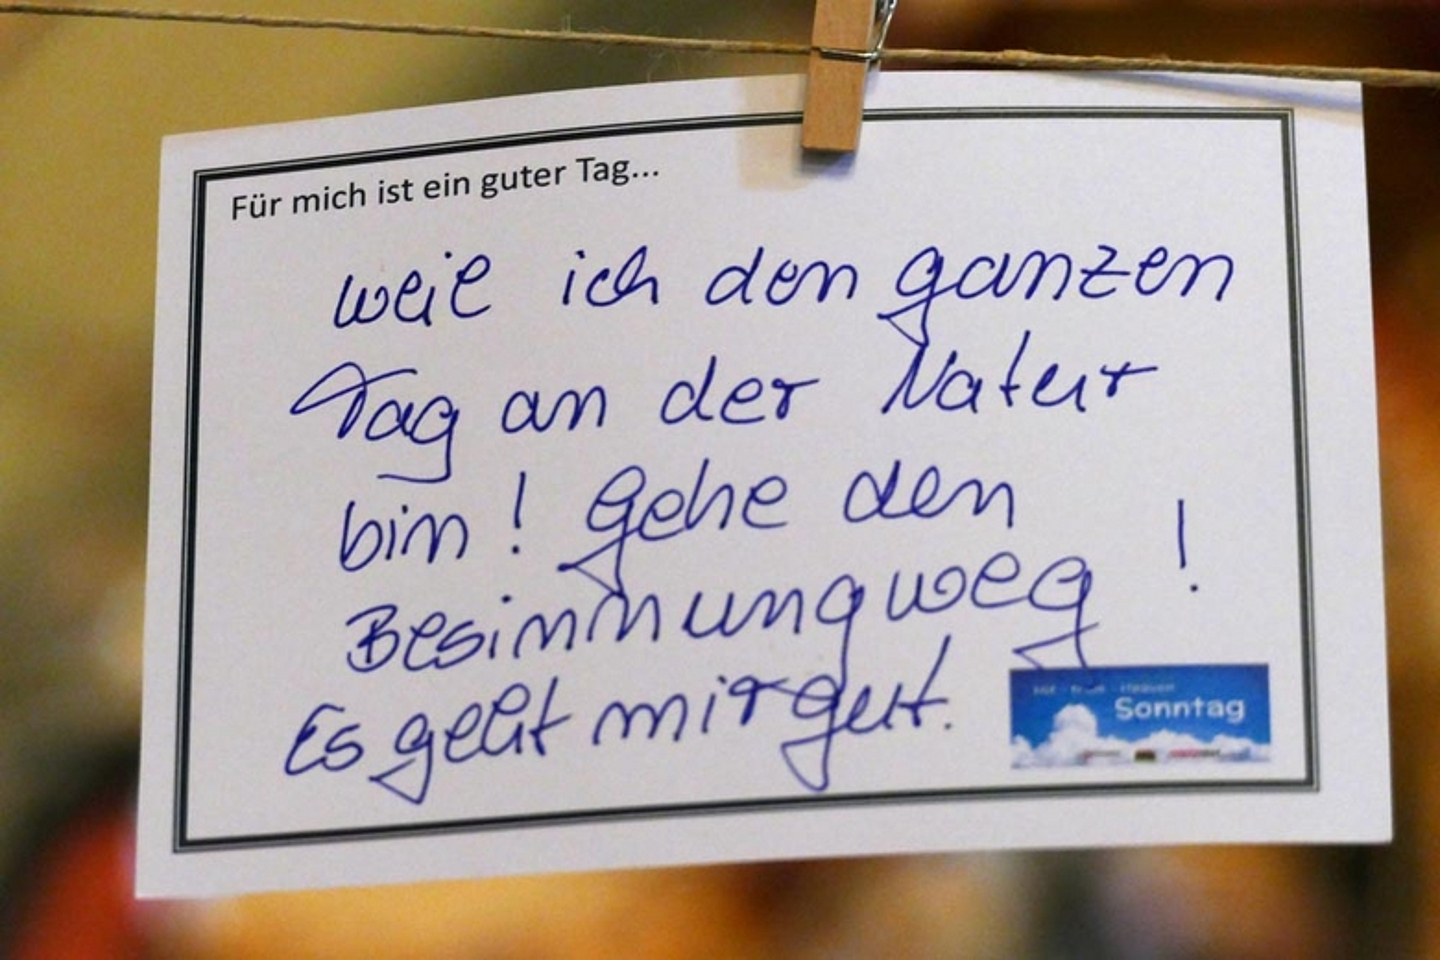 Für mich ist ein guter Tag...
weil ich den ganzen
Tag an der Natur
bin! gehe den
Besinnungweg!
Es geht mir gut.
Sonntag